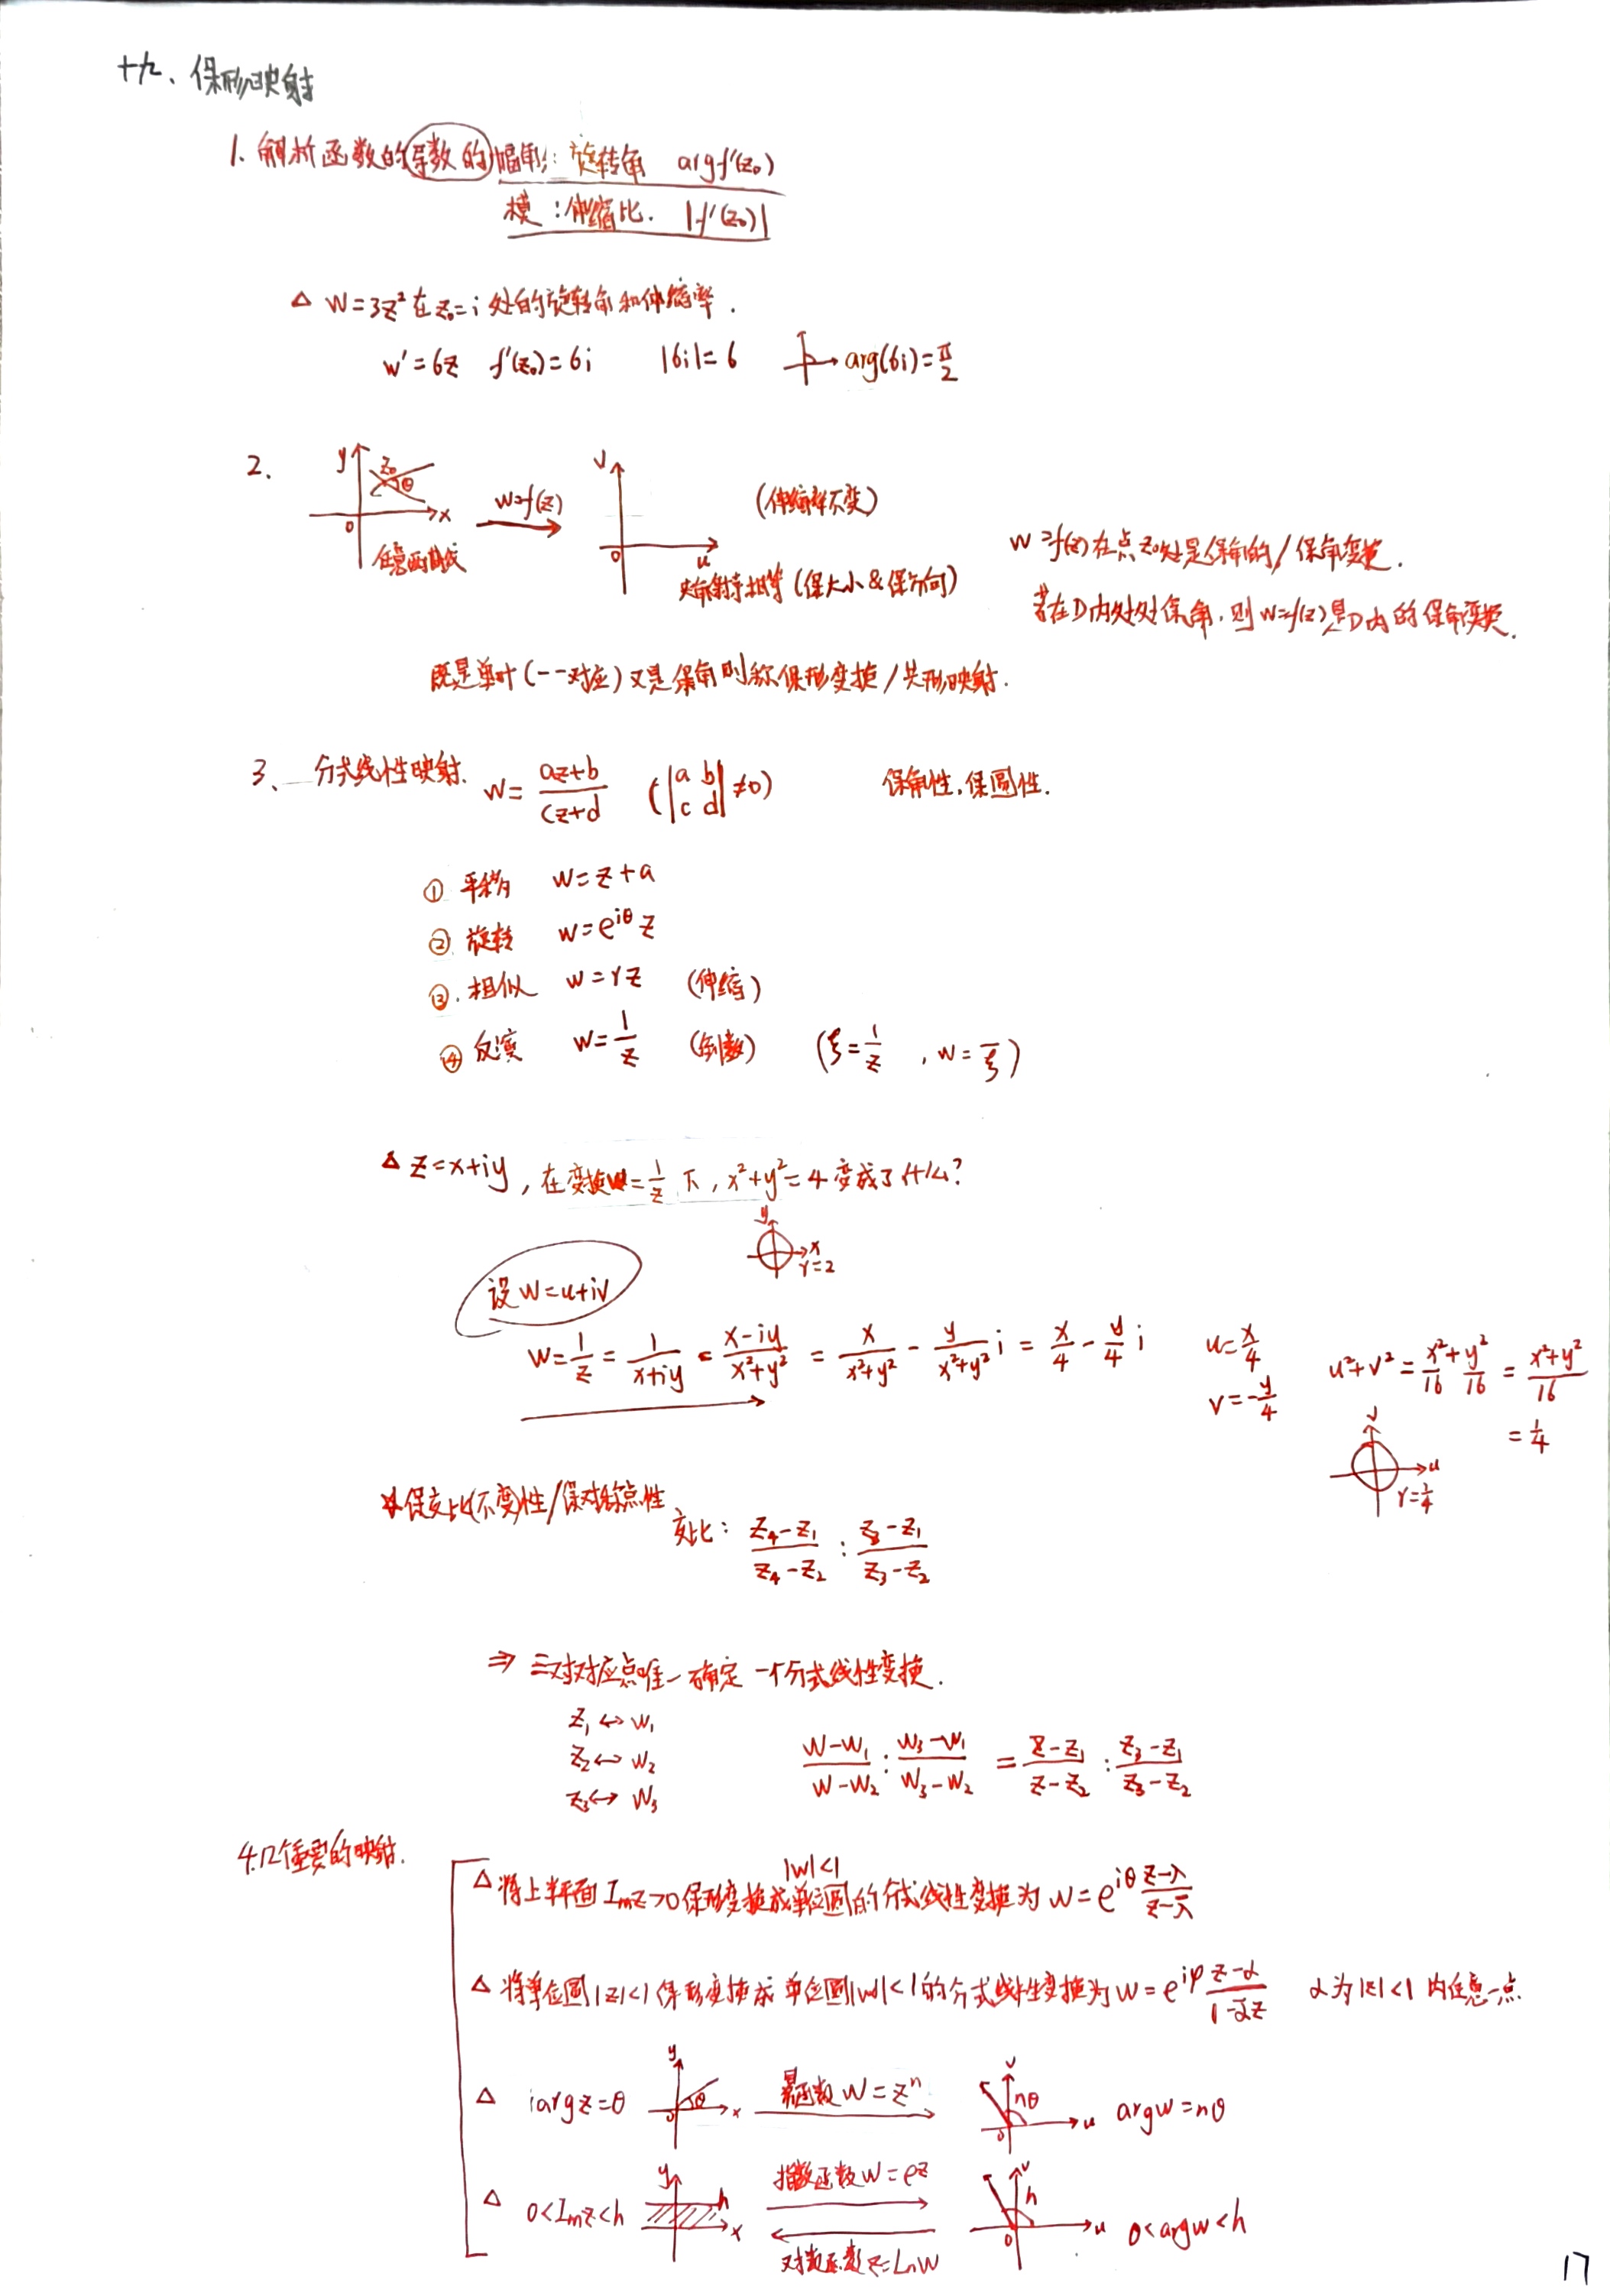 十九、保形映射
1. 解析函数的导数的幅角: 旋转角 arg f'(z₀)
模:伸缩比. |f'(z₀)|
△ w=3z² 在 z₀=i 处的旋转角和伸缩率.
w'=6z f'(z₀)=6i |6i|=6 arg(6i)=π/2
2. y z₀ θ x 0 任意两曲线 w=f(z) v u 0 (伸缩率不变)
夹角相等(保大小&保方向)
w=f(z)在点z₀处是保角的/保角变换.
若在D内处处保角,则w=f(z)是D内的保角变换.
既是单叶(一一对应)又是保角则称保形变换/共形映射.
3、分式线性映射. w=(az+b)/(cz+d) (|a b; c d|≠0) 保角性,保圆性.
① 平移 w=z+a
② 旋转 w=e^{iθ}z
③. 相似 w=rz (伸缩)
④ 反演 w=1/z (倒数) (ξ=1/z̄ , w=ξ̄)
△ z=x+iy, 在变换w=1/z 下, x²+y²=4 变成了什么?
y x r=2
设 w=u+iv
w=1/z=1/(x+iy)=(x-iy)/(x²+y²)=x/(x²+y²)-y/(x²+y²)i=x/4-y/4 i u=x/4 v=-y/4 u²+v²=x²/16+y²/16=(x²+y²)/16
=1/4
v u r=1/4
保交比(不变)性/保对称点性
交比: (z₄-z₁)/(z₄-z₂) : (z₃-z₁)/(z₃-z₂)
⇒ 三对对应点唯一确定一个分式线性变换.
z₁↔w₁
z₂↔w₂
z₃↔w₃
(w-w₁)/(w-w₂) : (w₃-w₁)/(w₃-w₂) = (z-z₁)/(z-z₂) : (z₃-z₁)/(z₃-z₂)
4.几个重要的映射.
△ 将上半平面 Imz>0 保形变换成单位圆|w|<1的分式线性变换为 w=e^{iθ}(z-λ)/(z-λ̄)
△ 将单位圆|z|<1 保形变换成单位圆|w|<1的分式线性变换为w=e^{iφ}(z-α)/(1-ᾱz) α为|z|<1 内任意一点
△ argz=θ y θ 0 x 幂函数 w=zⁿ v nθ 0 u argw=nθ
△ 0<Imz<h y h x 指数函数w=e^z 对数函数z=Lnw v h 0 u 0<argw<h
17